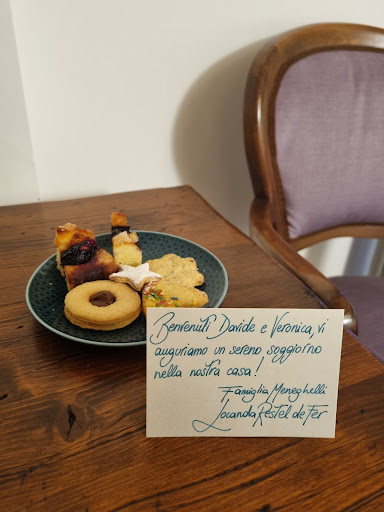 Benvenuti Davide e Veronica, vi
auguriamo un sereno soggiorno
nella nostra casa!
Famiglia Meneghelli
Locanda Restel de Fer